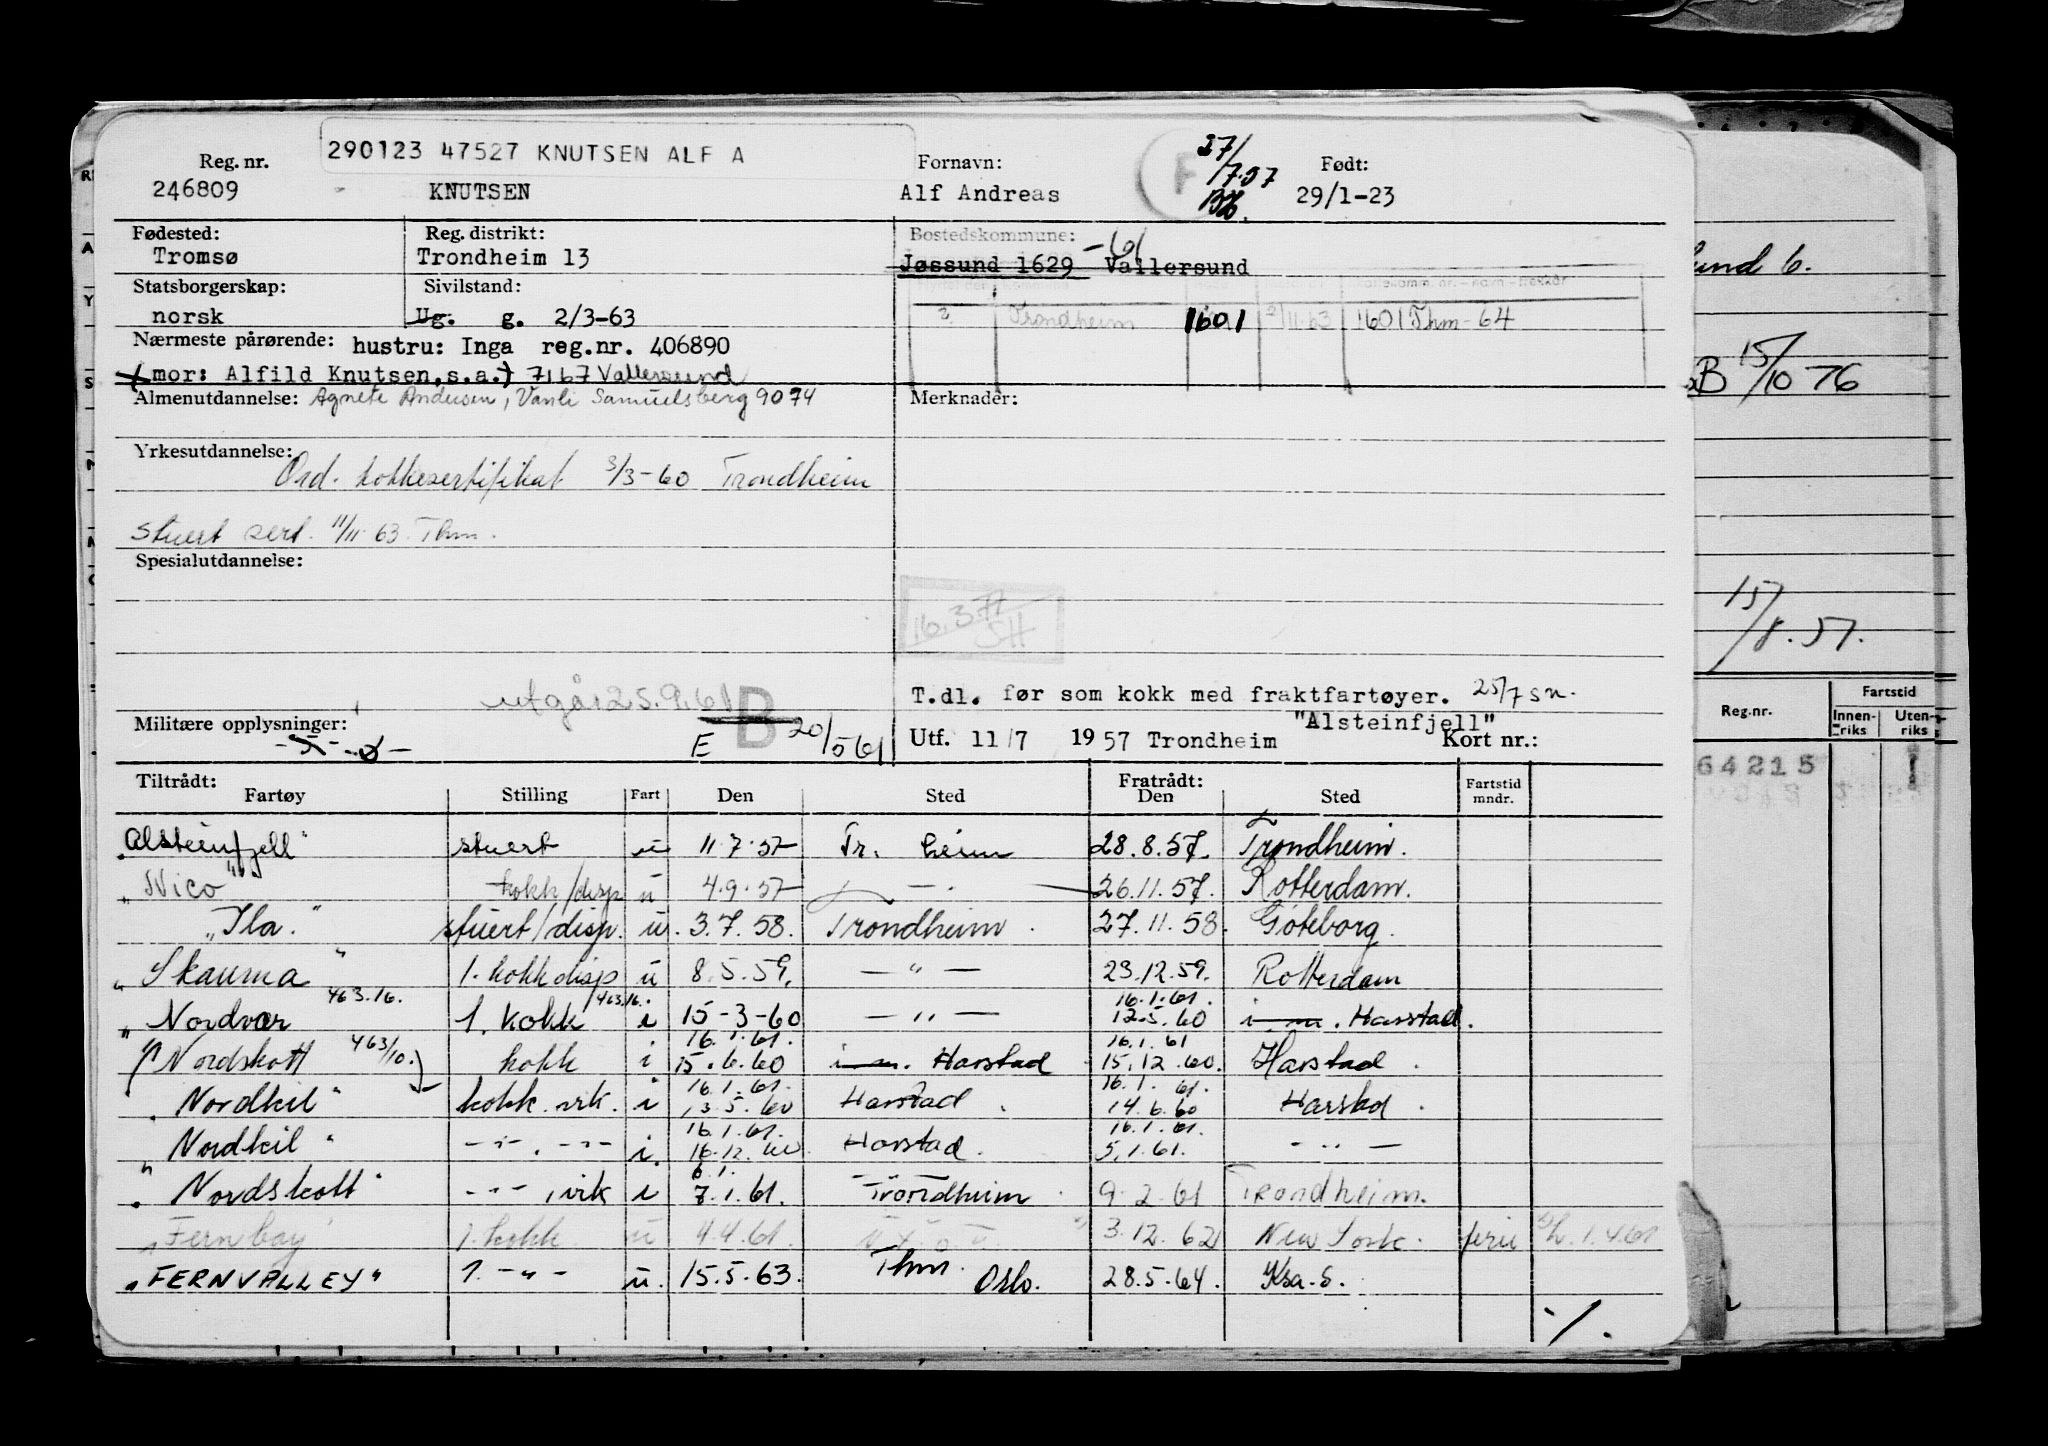 290123 47527 KNUTSEN ALF A
Reg. nr. Fornavn: 27/7.57 Født:
246809 KNUTSEN Alf Andreas F 29/1-23
Fødested: Reg. distrikt: Bostedskommune:
Tromsø Trondheim 13 Jøssund 1629 - Vallersund
Statsborgerskap: Sivilstand:
norsk Ug. g. 2/3-63 Trondheim 1601 2/11 63 1601 Thm - 64
Nærmeste pårørende: hustru: Inga reg.nr. 406890
(mor: Alfild Knutsen, s.a.) 7167 Vallersund
Almenutdannelse: Agnete Andersen, Vanli Samuelsberg 9074 Merknader:
Yrkesutdannelse:
Ord. kokkesertifikat 3/3-60 Trondheim
Stuert sert. 11/11 63 Thm.
Spesialutdannelse:
16.3.77
SH
utgår 25.9.61 B T.dl. før som kokk med fraktfartøyer. 25/7 sn.
Militære opplysninger: E 20/5 61 "Alsteinfjell"
Utf. 11/7 1957 Trondheim Kort nr.:
Tiltrådt: Fratrådt:
Fartøy Stilling Fart Den Sted Den Sted Fartstid mndr.
"Alsteinfjell" stuert u 11.7.57 Tr.heim 28.8.57. Trondheim.
"Nico" kokk/disp u 4.9.57 - " - 26.11.57. Rotterdam.
"Ila." stuert/disp. u. 3.7.58. Trondheim. 27.11.58. Göteborg.
"Skauma" 1. kokk disp u 8.5.59. - " - 23.12.59. Rotterdam
463.16. 463.16. 16.1.61.
"Nordvar 1. kokk i 15-3-60 - " - 12.5.60 i.m. Harstad.
16.1.61. 16.1.61
"Nordskott 463/10. kokk i 15.6.60 i.m. Harstad 15.12.60. Harstad.
16.1.61. 16.1.61.
"Nordkil" kokk. vik. i 13.5.60 Harstad. 14.6.60 Harstad.
16.1.61. 16.1.61.
Nordkil" - " - . - " - i. 16.12.60 Harstad. 5.1.61. - " -
6.1.
"Nordskott" - " - , vik i 7.1.61. Trondheim 9.2.61 Trondheim.
"Fernbay 1. kokk u 4.4.61. 3.12.62 New York. ferie 1.4.61
"FERNVALLEY" 1. - " - u. 15.5.63. Thm. Oslo. 28.5.64. Ksa.S.
./.
sund 6.
B 15/10 76
15/8.57.
Reg.nr. Fartstid
Innenriks Utenriks
64215